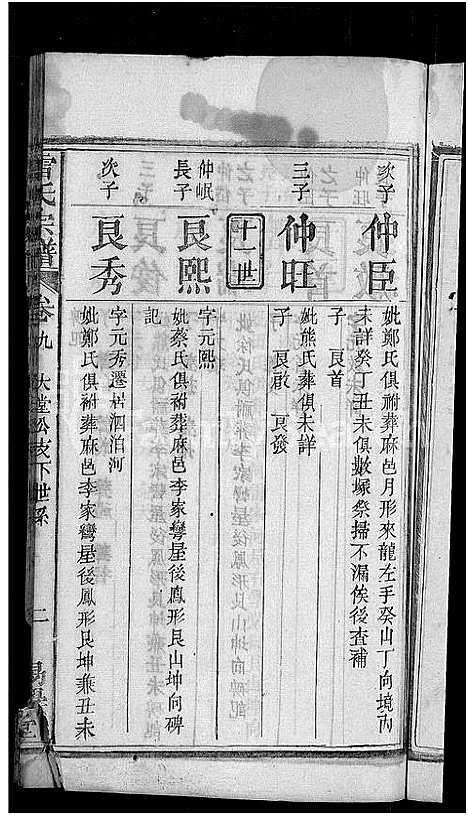 次子
仲臣
妣鄭氏俱祔葬麻邑月形來龍左手癸山丁向境內
未詳癸丁丑未俱數塚祭掃不漏俟後查補
子 良首
三子
仲旺
妣熊氏葬俱未詳
子 良啟 良發
十一世
仲岷
長子
良熙
字元熙
妣蔡氏俱祔葬麻邑李家彎屋後鳳形艮山坤向碑
記
次子
良秀
字元秀遷居泗泊河
妣鄭氏俱祔葬麻邑李家彎屋後鳳形艮坤兼丑未
雷氏宗譜
卷九
大堂公支下世系
二